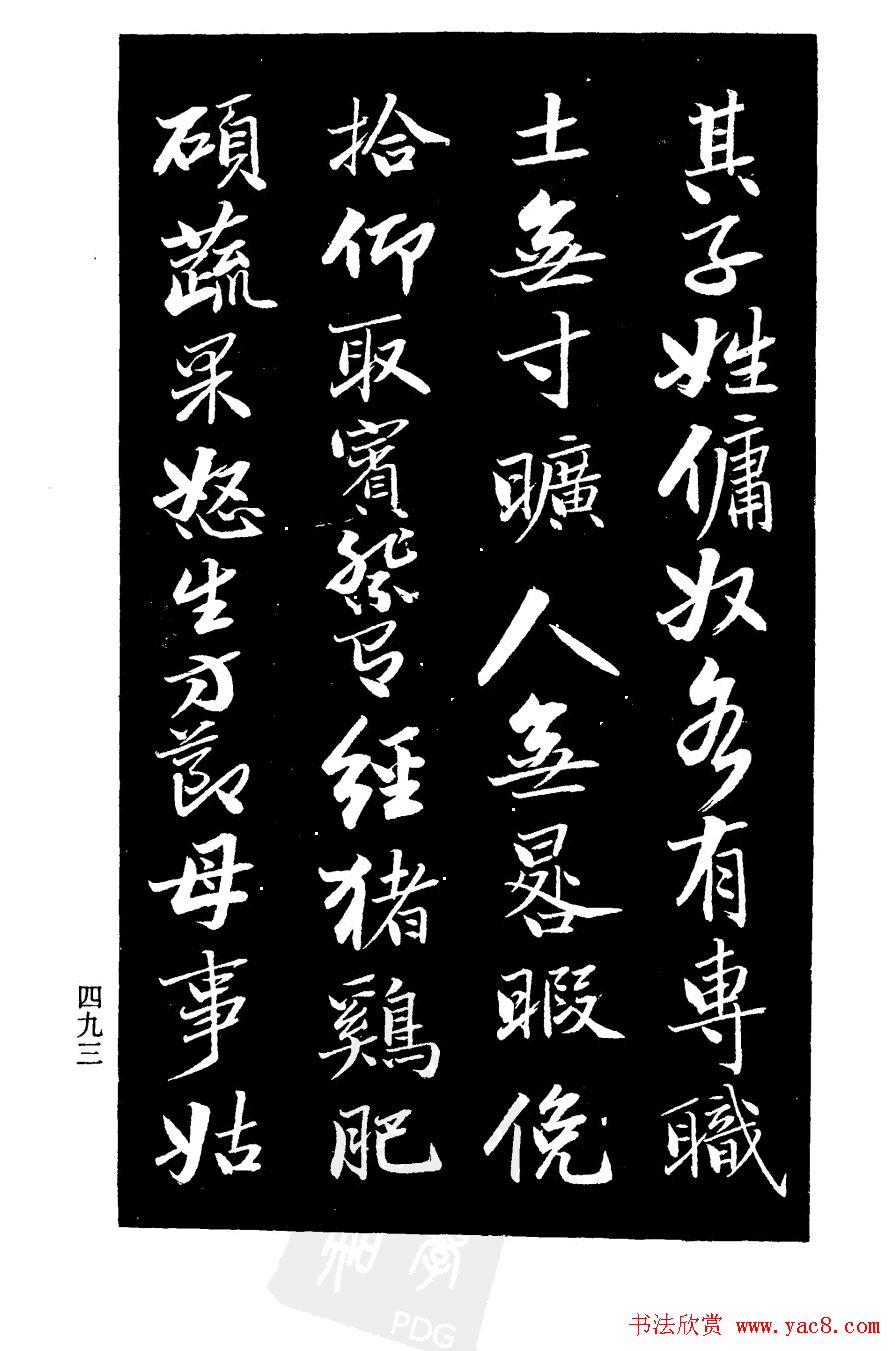 其子姓傭奴各有專職
土無寸曠人無晷暇俛
拾仰取賓祭有經猪鷄肥
碩蔬果怒生方節母事姑
四九三
PDG
书法欣赏 www.yac8.com